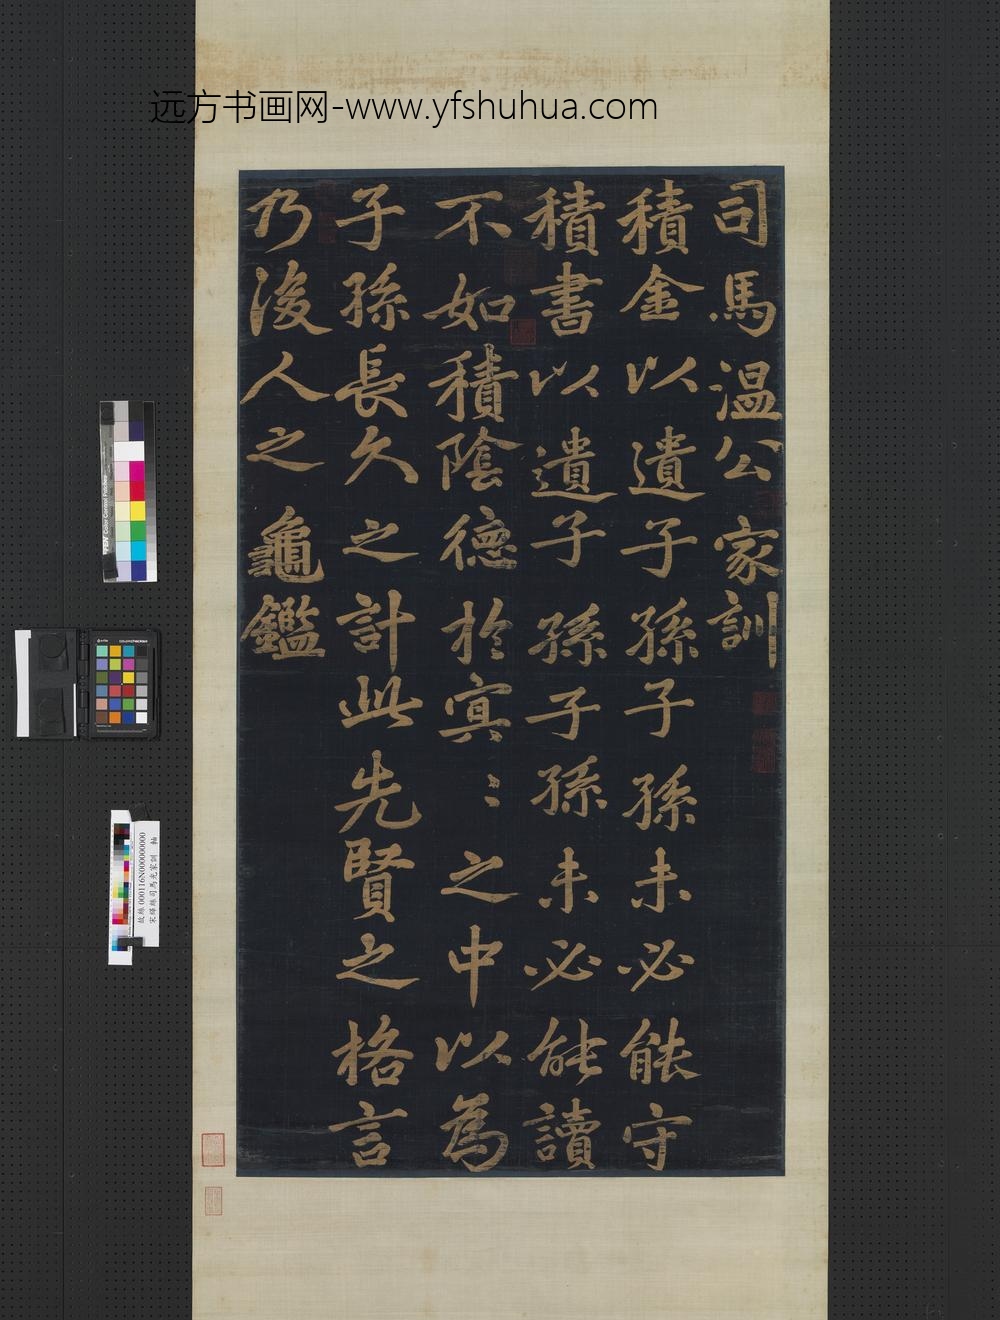 远方书画网-www.yfshuhua.com
司馬温公家訓
積金以遺子孫子孫未必能守
積書以遺子孫子孫未必能讀
不如積陰德於㝠〻之中以為
子孫長久之計此先賢之格言
乃後人之龜鑑
故絲 000116N000000000
宋緙絲司馬光家訓 軸